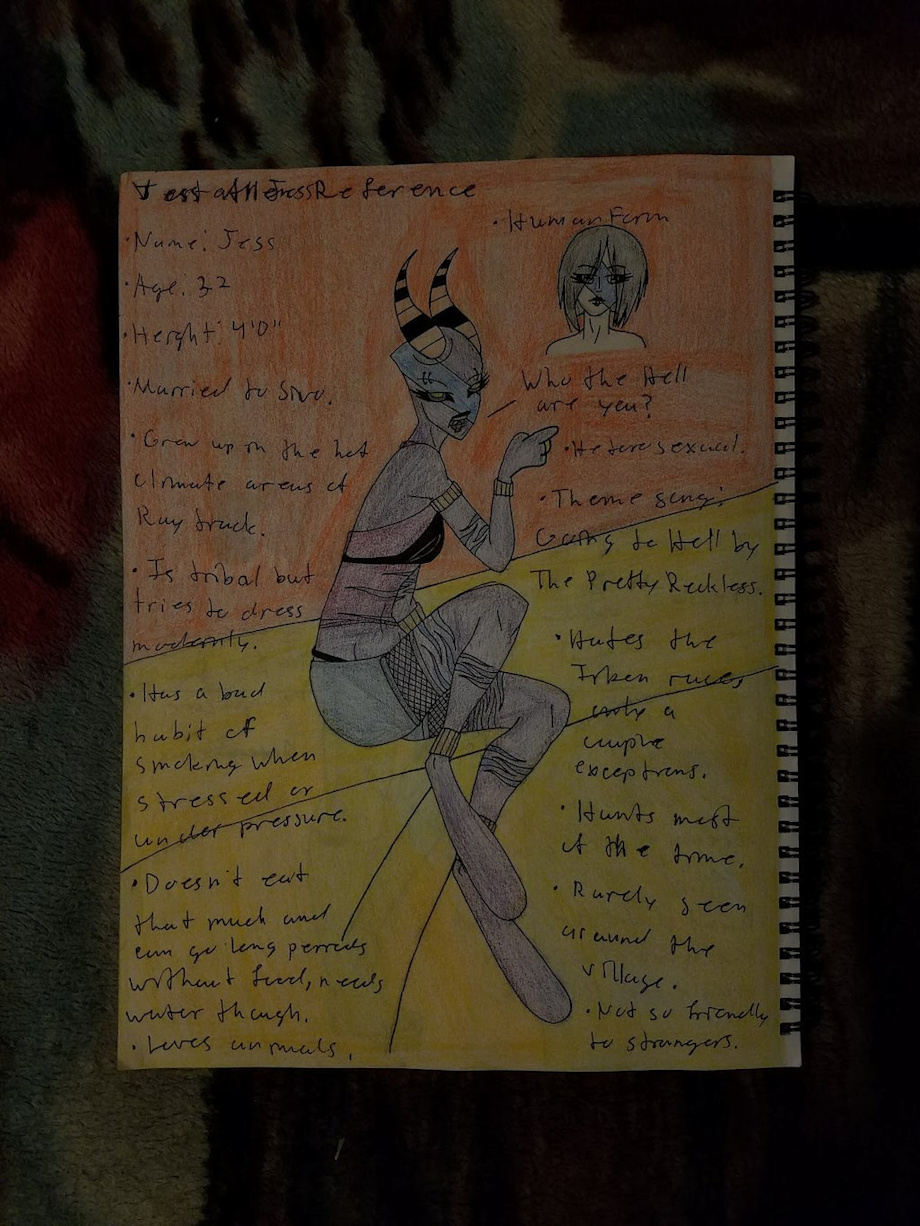 Jess Reference
• Name: Jess
• Age: 32
• Height: 4'0"
• Married to
• Grew up in the hot
climate areas of
• Is tribal but
tries to dress
modernly.
• Has a bad
habit of
smoking when
stressed or
under pressure.
• Doesn't eat
that much and
can go long periods
without food, needs
water though.
• Loves animals.
• Human Form
Who the Hell
are you?
• Heterosexual.
• Theme song:
Going to Hell by
The Pretty Reckless.
• Hates the
races
only a
couple
exceptions.
• Hunts most
of the time.
• Rarely seen
around the
village.
• Not so friendly
to strangers.